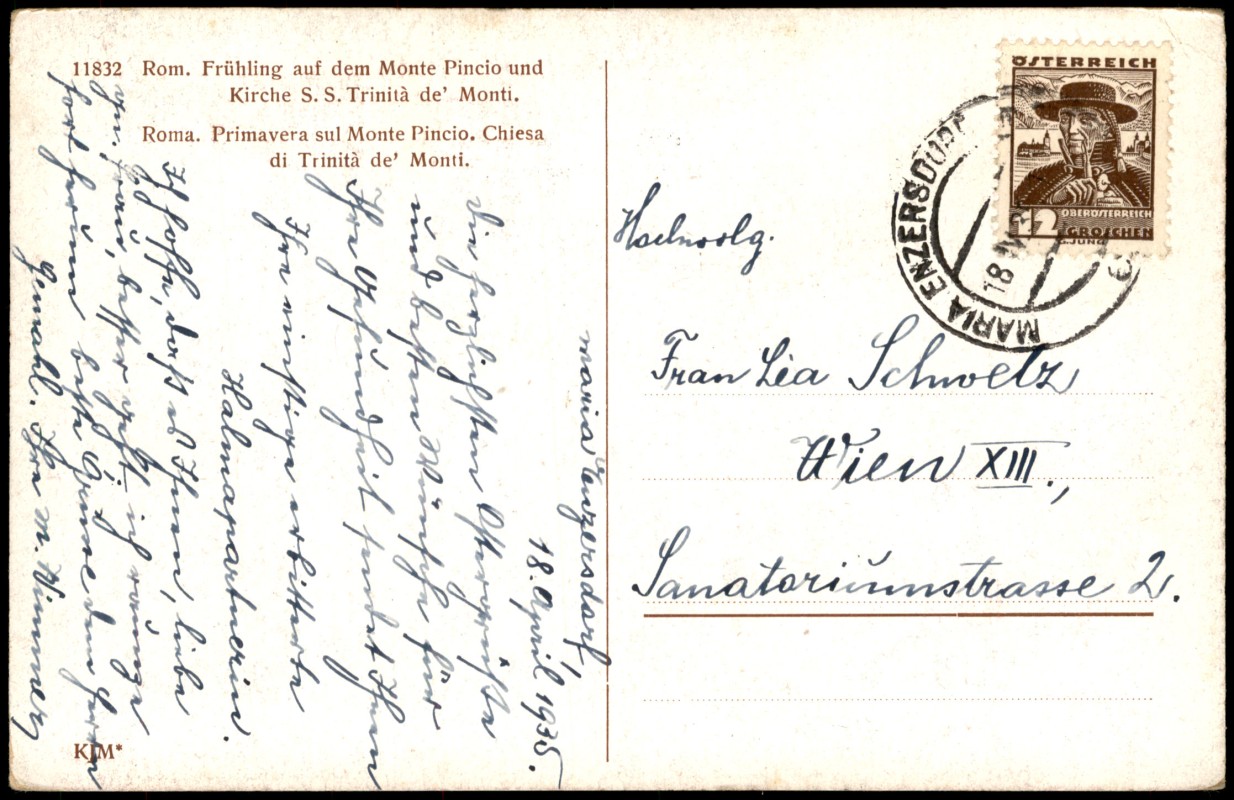 11832 Rom. Frühling auf dem Monte Pincio und
Kirche S. S. Trinità de' Monti.
Roma. Primavera sul Monte Pincio. Chiesa
di Trinità de' Monti.
Maria Enzersdorf,
18. April 1935.
Die herzlichsten Ostergrüße
und besten Wünsche für
Ihre Gesundheit sendet Ihnen
Ihre einstige erbitterte
Halmapartnerin.
Ich hoffe, daß es Ihnen, liebe
gn. Frau, besser geht ich
beste Grüße dem Herrn
Gemahl. Ihre M.
KJM*
ÖSTERREICH
12
OBERÖSTERREICH
GROSCHEN
G.JUNG
MARIA ENZERSDORF
18 IV 3
Hochwolg.
Frau Lia Schwelz
Wien XIII.,
Sanatoriumstrasse 2.